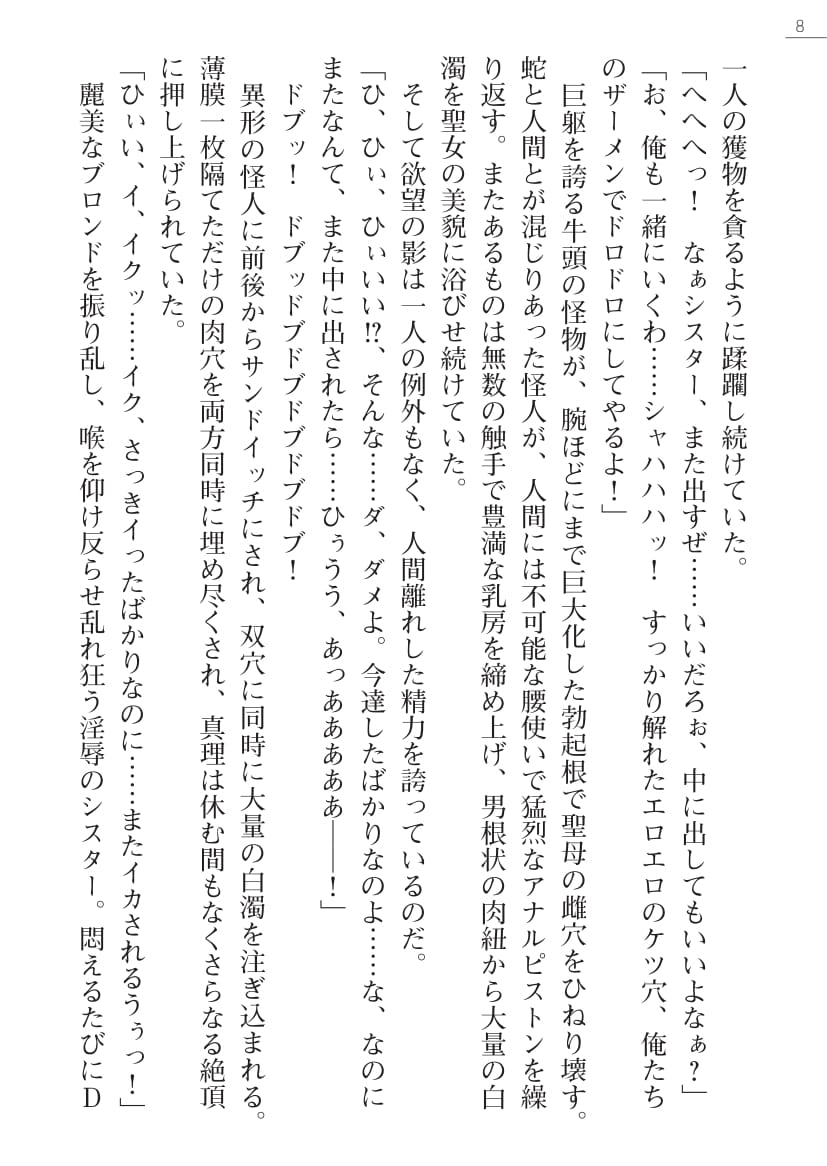 8
一人の獲物を貪るように蹂躙し続けていた。
「へへへっ！　なぁシスター、また出すぜ……いいだろぉ、中に出してもいいよなぁ？」
「お、俺も一緒にいくわ……シャハハハッ！　すっかり解れたエロエロのケツ穴、俺たち
のザーメンでドロドロにしてやるよ！」
　巨躯を誇る牛頭の怪物が、腕ほどにまで巨大化した勃起根で聖母の雌穴をひねり壊す。
蛇と人間とが混じりあった怪人が、人間には不可能な腰使いで猛烈なアナルピストンを繰
り返す。またあるものは無数の触手で豊満な乳房を締め上げ、男根状の肉紐から大量の白
濁を聖女の美貌に浴びせ続けていた。
　そして欲望の影は一人の例外もなく、人間離れした精力を誇っているのだ。
「ひ、ひぃ、ひぃいい!?、そんな……ダ、ダメよ。今達したばかりなのよ……な、なのに
またなんて、また中に出されたら……ひぅうう、あっあああああ――！」
　ドブッ！　ドブッドブドブドブドブ！
　異形の怪人に前後からサンドイッチにされ、双穴に同時に大量の白濁を注ぎ込まれる。
薄膜一枚隔てただけの肉穴を両方同時に埋め尽くされ、真理は休む間もなくさらなる絶頂
に押し上げられていた。
「ひぃい、イ、イクッ……イク、さっきイったばかりなのに……またイカされるうぅっ！」
　麗美なブロンドを振り乱し、喉を仰け反らせ乱れ狂う淫辱のシスター。悶えるたびにD